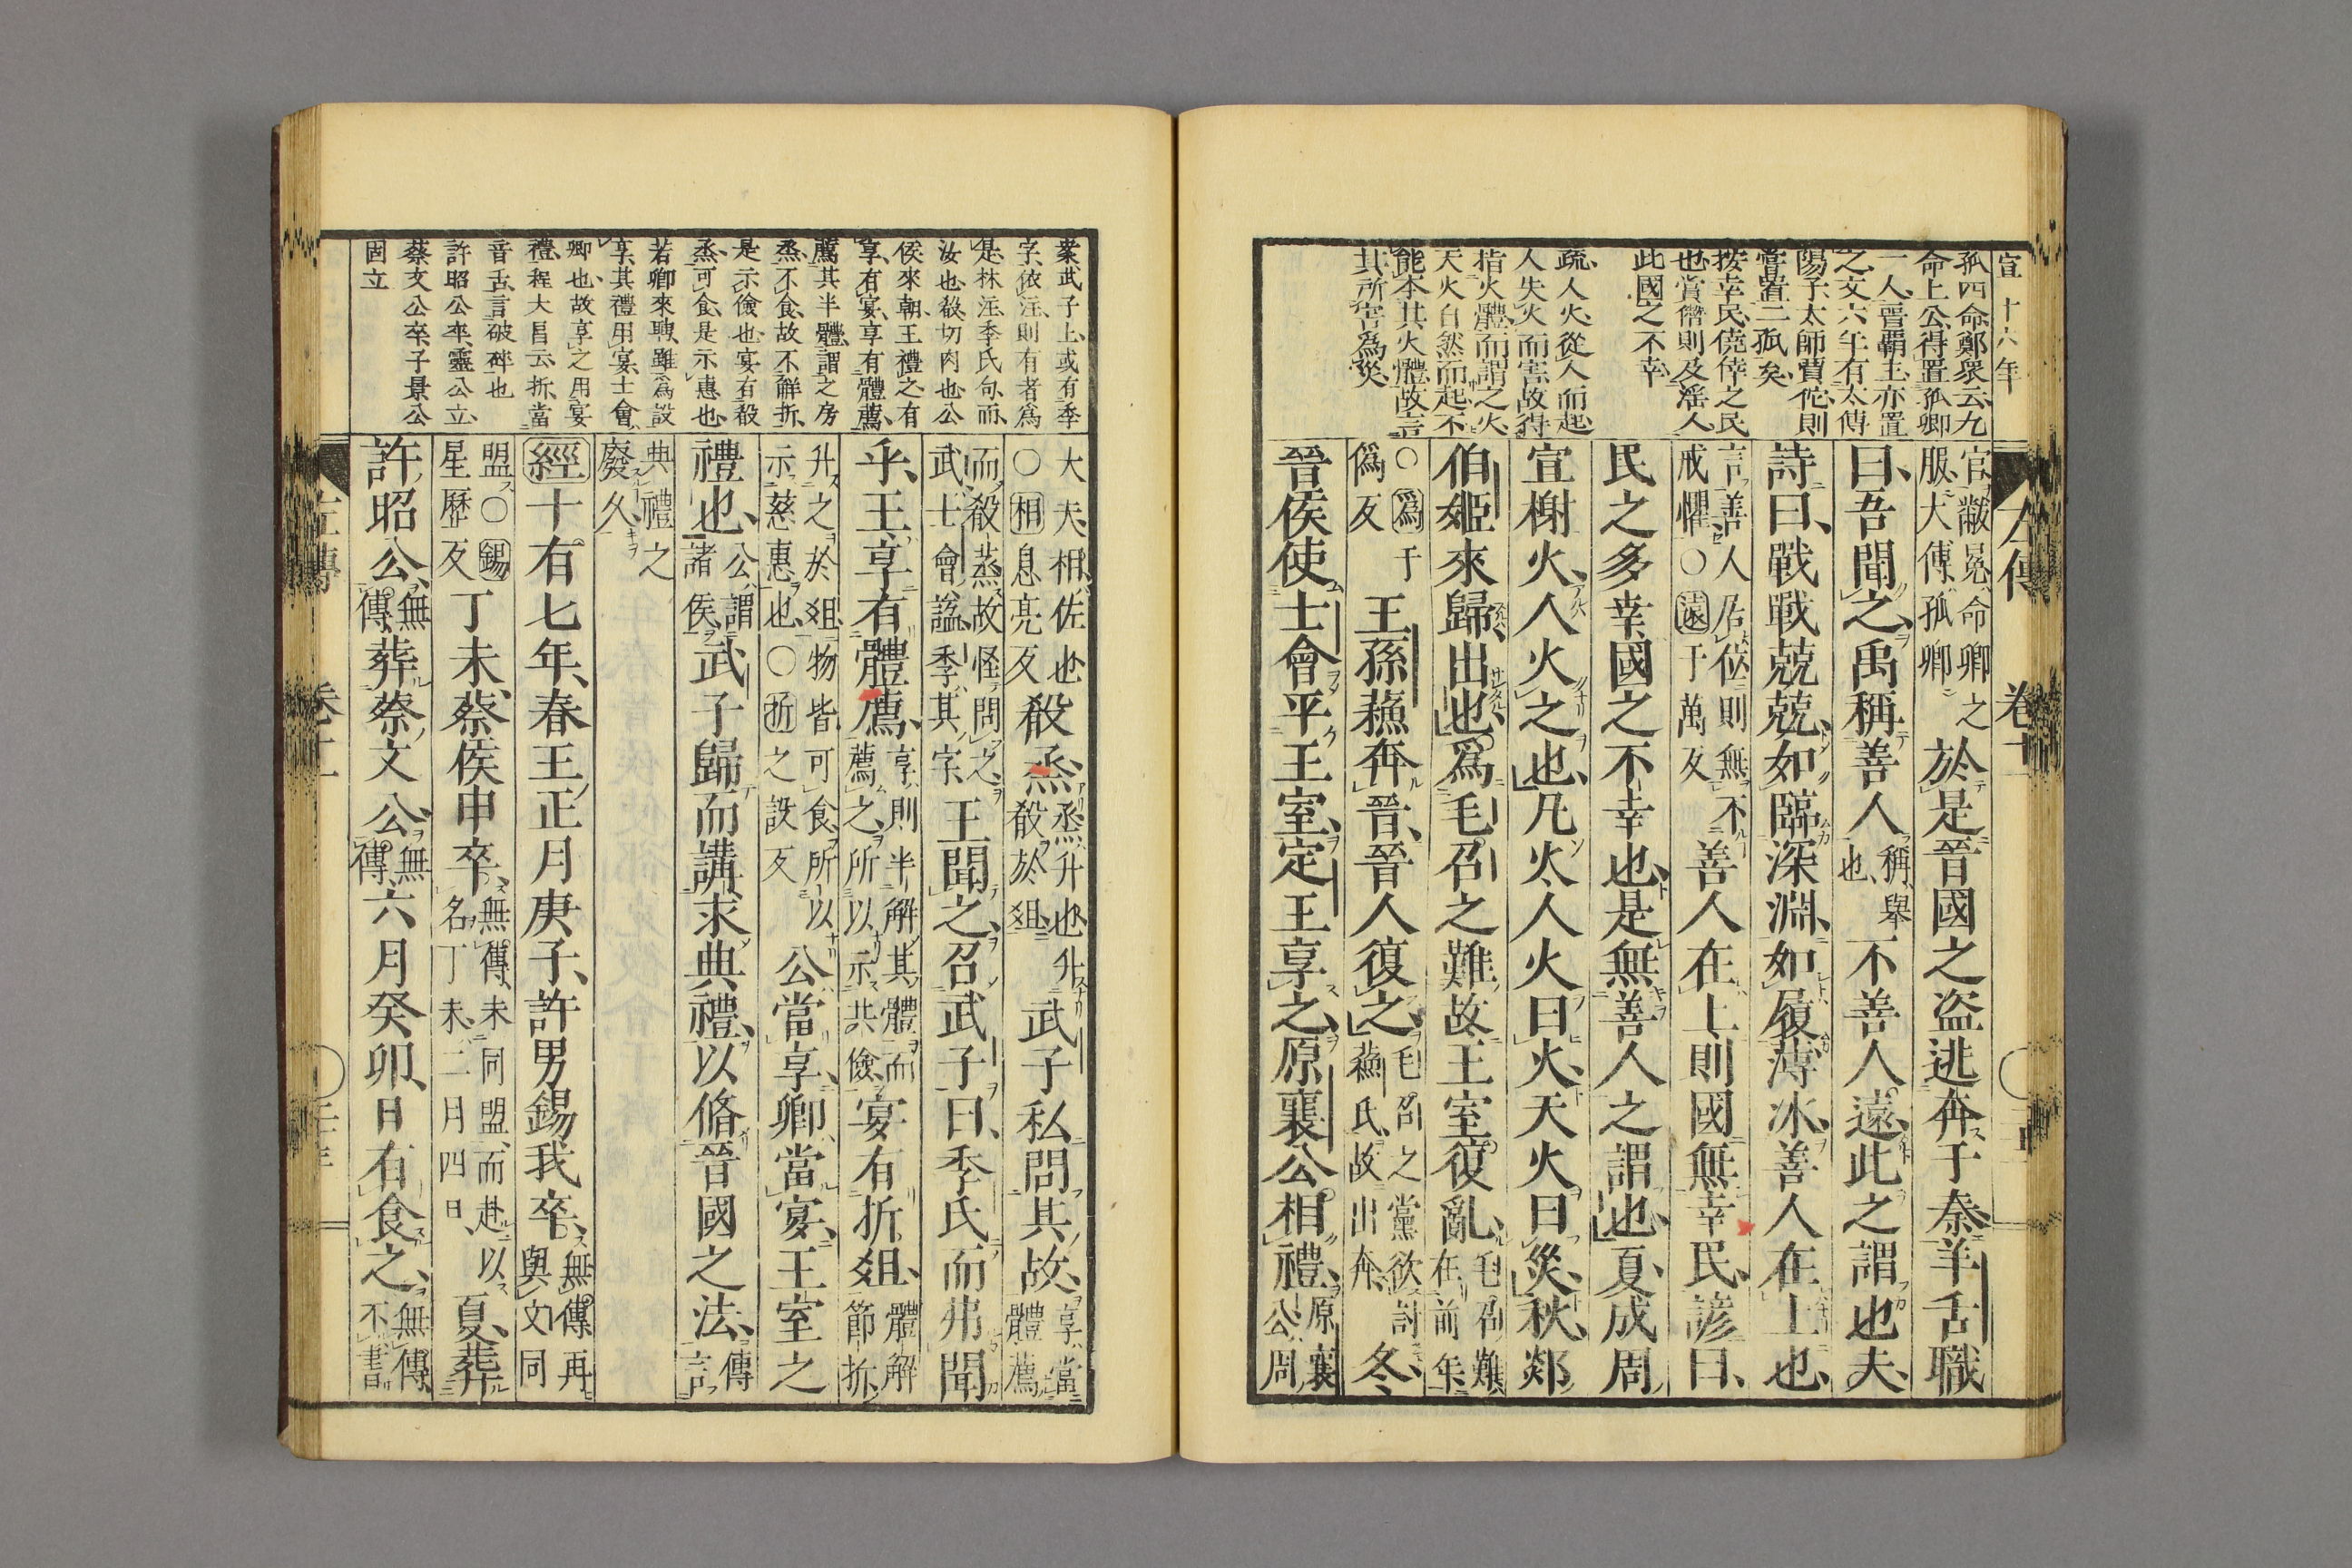 宣十六年
孤四命鄭衆云九
命上公得置孤卿
一人晋覇主亦置
之文六年有太傅
陽子太師賈佗則
嘗置二孤矣
按幸民僥倖之民
也賞僭則及淫人
此國之不幸
疏人火從人而起
人失火而害故得
指火體而謂之火
天火自然而起不
能本其火體故言
其所害爲災
左傳 卷十一
官黻冕命卿之
服大傅孤卿
於是晉國之盗逃奔于秦羊舌職
曰吾聞之禹稱善人
稱舉
也
不善人遠此之謂也夫
詩曰戰戰兢兢如臨深淵如履薄冰善人在上也
言善人居位則無不
戒懼○遠于萬反
善人在上則國無幸民諺曰
民之多幸國之不幸也是無善人之謂也夏成周
宣榭火人火之也凡火人火曰火天火曰災秋郯
伯姬來歸出也爲毛召之難故王室復亂
毛召難
在前年
○爲于
僞反
王孫蘇奔晉晉人復之
毛召之黨欲討
蘇氏故出奔
冬
晉侯使士會平王室定王享之原襄公相禮
原襄
公周
衆武子上或有季
字依注則有者爲
是林注季氏句而
汝也殽切肉也公
侯來朝王禮之有
享有宴享有體薦
薦其半體謂之房
烝不食故不解折
是示儉也宴有殽
烝可食是示惠也
若卿來聘雖爲設
享其禮用宴士會
卿也故享之用宴
禮程大昌云折當
音舌言破碎也
許昭公卒靈公立
蔡文公卒子景公
固立
大夫相佐也
○相息亮反
殽烝
烝升也升
殽於俎
武子私問其故
享當
體薦
而殽烝故怪問之
武士會謚季其字
王聞之召武子曰季氏而弗聞
乎王享有體薦
享則半解其體而
薦之所以示共儉
宴有折俎
體解
節折
升之於俎物皆可食所以
示慈惠也○折之設反
公當享卿當宴王室之
禮也
公謂
諸侯
武子歸而講求典禮以脩晉國之法
傳
言
典禮之
廢久
經十有七年春王正月庚子許男錫我卒
無傳再
與文同
盟○錫
星歷反
丁未蔡侯申卒
無傳未同盟而赴以
名丁未二月四日
夏葬
許昭公
無
傳
葬蔡文公
無
傳
六月癸卯日有食之
無傳
不書
左傳 卷十一